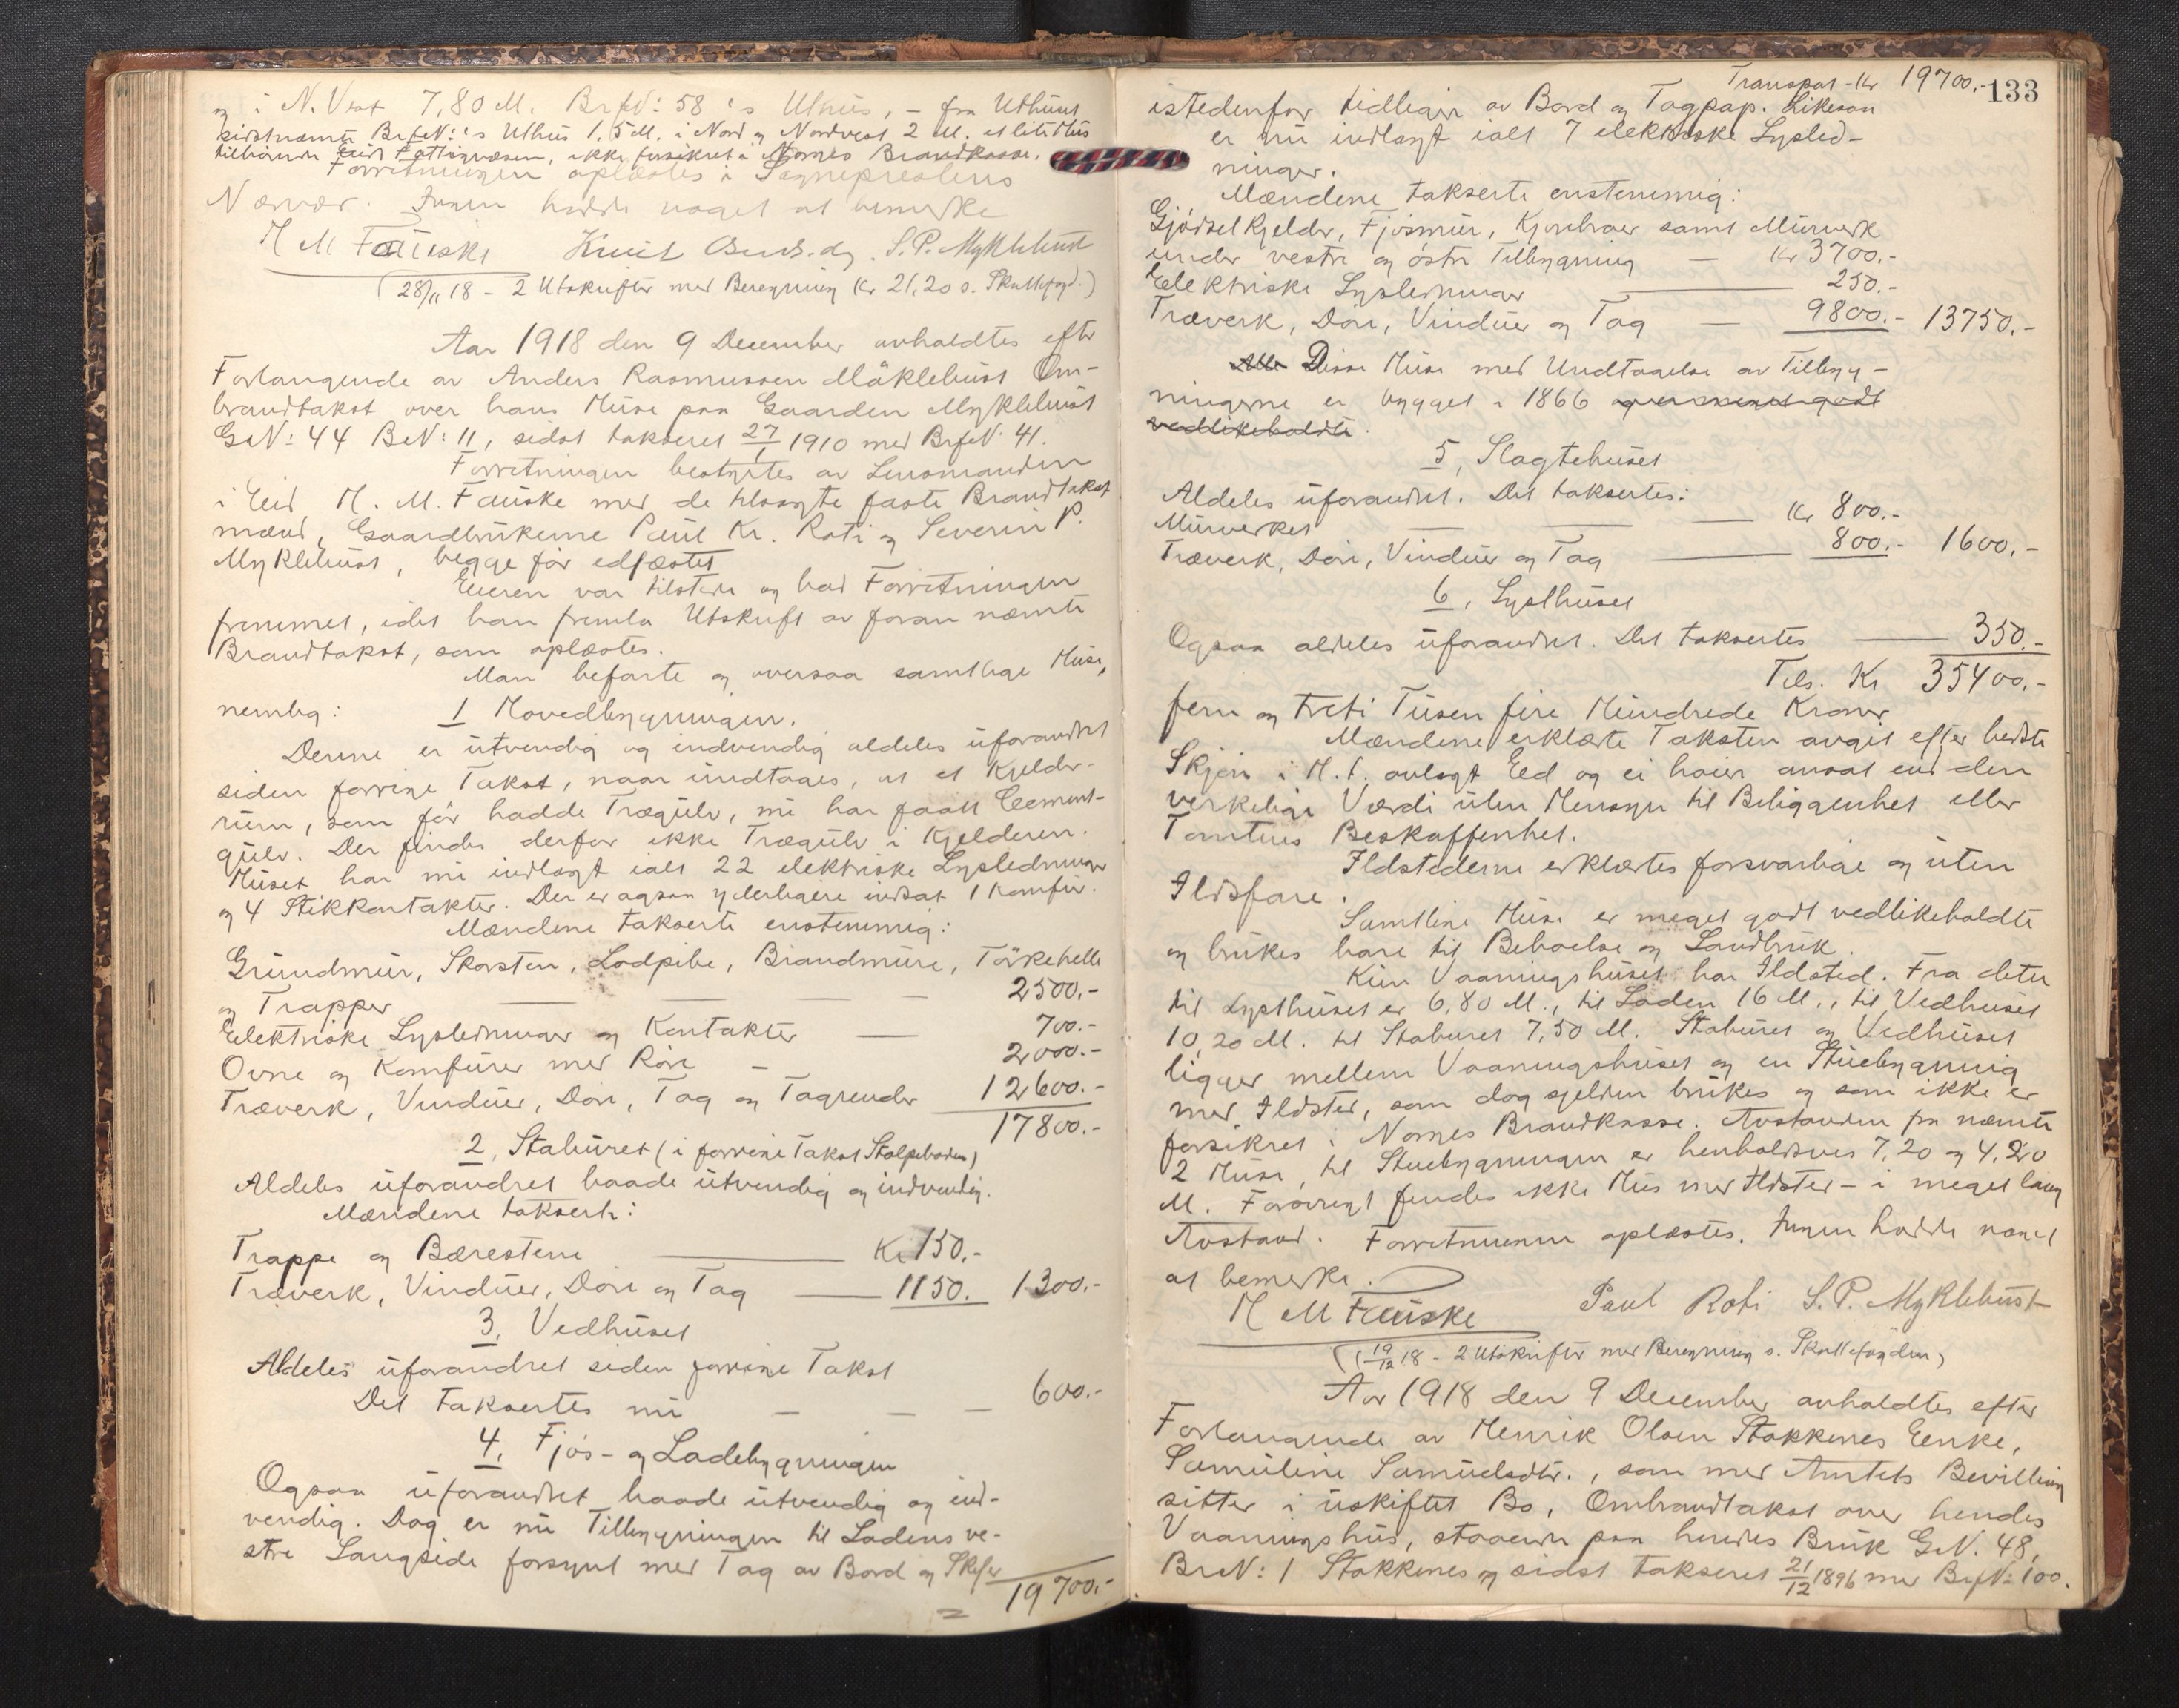 og i N.Vest 7,80 M. BrfN: 58's Uthus, – fra Uthuset
sidstnævnte BrfN:'s Uthus 1,5 M. i Nord og Nordvest 2 M. et litet Hus
tilhørende Eids Fattigvæsen, ikke forsikret i Norges Brandkasse.
Forretningen oplæstes i Sogneprestens
Nærvær. Ingen hadde noget at bemerke
H M Fauske Knut S. P. Myklebust
(28/11 18 – 2 Utskrifter med Beregning Kr 21,20 s. Skattefogd.)
Aar 1918 den 9 December avholdtes efter
Forlangende av Anders Rasmussen Mäklebust Om-
brandtakst over hans Huse paa Gaarden Myklebust
GNo: 44 BNo: 11, sidst takseret 27/1 1910 med BrfN. 41.
Forretningen bestyrtes av Lensmanden
i Eid H. M. Fauske med de tilsagte faste Brandtakst
mænd, Gaardbrukerne Paul Kr. Roti og Severin P.
Myklebust, begge før edfæstet
Eieren var tilstede og bad Forretningen
fremmet, idet han fremla Utskrift av foran nævnte
Brandtakst, som oplæstes.
Man befarte og oversaa samtlige Huse,
nemlig: 1 Hovedbygningen.
Denne er utvendig og indvendig aldeles uforandret
siden forrige Takst, naar undtages, at et Kjelder-
rum, som før hadde Trægulv, nu har faatt Cement-
gulv. Der findes derfor ikke Trægulv i Kjelderen.
Huset har nu indlagt ialt 22 elektriske Lysledninger
og 4 Stikkontakter. Der er ogsaa yderligere indsat 1 Komfur.
Mændene takserte enstemmig:
Grundmur, Skorsten, Lodpibe, Brandmure, Tørkehelle
og Trapper — — — 2500.-
Elektriske Lysledninger og Kontakter — 700.-
Ovne og Komfurer med Rør — 2000.-
Træverk, Vinduer, Døre, Tag og Tagrender 12600.-
17800.-
2, Staburet (i forrige Takst Stolpeboden)
Aldeles uforandret baade utvendig og indvendig.
Mændene takserte:
Trappe og Bærestene — Kr 150.-
Træverk, Vinduer, Døre og Tag — 1150. 1300.-
3, Vedhuset
Aldeles uforandret siden forrige Takst
Det taksertes nu — — — 600.-
4, Fjøs- og Ladebygningen
Ogsaa uforandret baade utvendig og ind-
vendig. Dog er nu Tilbygningen til Ladens ve-
stre Langside forsynt med Tag av Bord og Skifer
= 19700.-
Transport Kr 19700.- 133
istedenfor tidligere av Bord og Tagpap. Likesaa
er nu indlagt ialt 7 elektriske Lysled-
ninger.
Mændene takserte enstemmig:
Gjødselkjelder, Fjøsmur, Kjørebroer samt Murverk
under vestre og østre Tilbygning — Kr 3700.-
Elektriske Lysledninger — 250.-
Træverk, Døre, Vinduer og Tag — 9800.- 13750.-
Alle Disse Huse med Undtagelse av Tilbyg-
ningerne er bygget i 1866 og er meget godt
vedlikeholdte.
5, Slagtehuset
Aldeles uforandret. Det takseres:
Murverket — — — Kr 800.-
Træverk, Døre, Vinduer og Tag — 800.- 1600,-
6, Lysthuset
Ogsaa aldeles uforandret. Det takseres — 350.-
Tils. Kr 35400.-
fem og treti Tusen fire Hundrede Kroner
Mændene erklærte Taksten avgit efter bedste
Skjøn i H. t. avlagt Ed og ei høiere ansat end den
verkelige Værdi uten Hensyn til Beliggenhet eller
Tomtens Beskaffenhet.
Ildstederne erklærtes forsvarlige og uten
Ildsfare.
Samtlige Huse er meget godt vedlikeholdte
og brukes bare til Beboelse og Landbruk.
Kun Vaaningshuset har Ildsted. Fra dette
til Lysthuset er 6,80 M., til Laden 16 M., til Vedhuset
10,20 M. til Staburet 7,50 M. Staburet og Vedhuset
ligger mellem Vaaningshuset og en Stuebygning
med Ildsted, som dog sjelden brukes og som ikke er
forsikret i Norges Brandkasse. Avstanden fra nævnte
2 Huse til Stuebygningen er henholdsvis 7,20 og 4,20
M. Forøvrigt findes ikke Hus med Ildsted – i meget lang
Avstand. Forretningen oplæstes. Ingen hadde noget
at bemerke.
H M Fauske Paul Roti S. P. Myklebust
(19/12 18 – 2 Utskrifter med Beregning s. Skattefogden)
Aar 1918 den 9 December avholdtes efter
Forlangende av Henrik Olsen Stokkenes Enke,
Samuline Samuelsdtr., som med Amtets Bevilling
sitter i uskiftet Bo, Ombrandtakst over hendes
Vaaningshus, staaende paa hendes Bruk GN. 48,
BrN: 1 Stokkenes og sidst takseret 21/12 1896 med BrfN: 100.